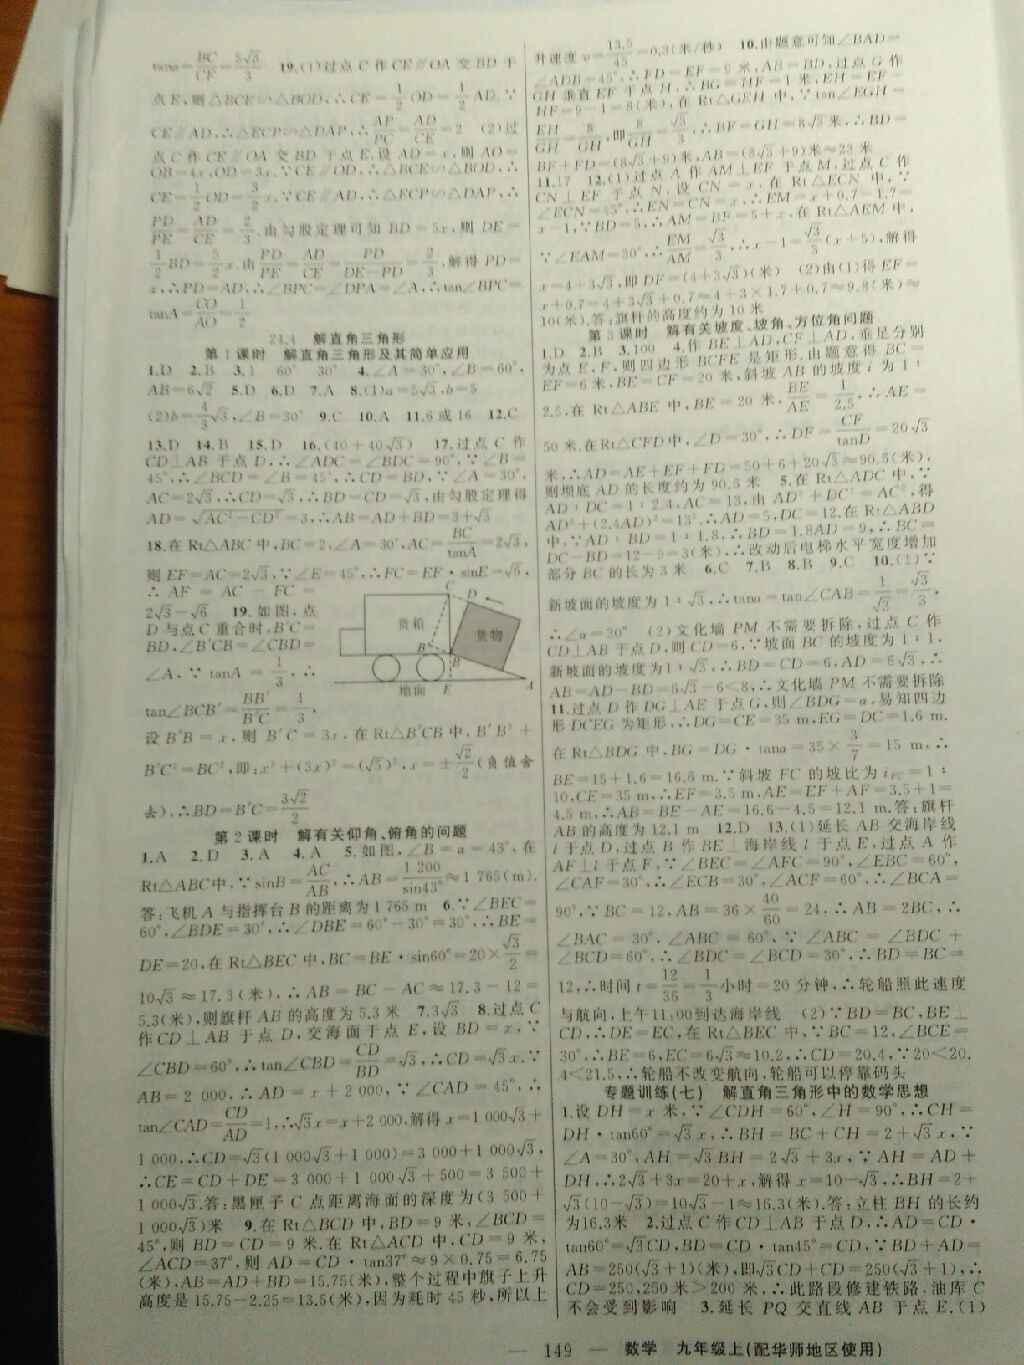 tanα=BC/CF=5√3/3 19.(1)过点 C 作 CE∥OA 交 BD 于
点 E,则△BCE∽△BOD,∴CE=1/2 OD=1/2 AD.∵
CE∥AD,∴△ECP∽△DAP,∴AP/PC=AD/CE=2 (2)过
点 C 作 CE∥OA 交 BD 于点 E,设 AD=x,则 AO=
OB=4x,OD=3x.∵CE∥OD,∴△BCE∽△BOD,∴
CE=1/2 OD=3/2 x.∵CE∥AD,∴△ECP∽△DAP,∴
PD/PE=AD/CE=2/3.由勾股定理可知 BD=5x,则 DE=
1/2 BD=5/2 x.由 PD/PE=AD/CE=PD/(DE-PD)=2/3,解得 PD=
x,∴PD=AD,∴∠BPC=∠DPA=∠A,∴tan∠BPC=
tanA=CO/AO=1/2
24.4 解直角三角形
第1课时 解直角三角形及其简单应用
1.D 2.B 3.1 60° 30° 4.∠A=30°,∠B=60°,
AB=6√2 5.D 6.D 7.A 8.(1)a=5√3,b=5
(2)b=4/3√3,∠B=30° 9.C 10.A 11.6或16 12.C
13.D 14.B 15.D 16.(40+40√3) 17.过点 C 作
CD⊥AB 于点 D,∴∠ADC=∠BDC=90°,∵∠B=
45°,∴∠BCD=∠B=45°,∴CD=BD,∵∠A=30°,
AC=2√3,∴CD=√3,∴BD=CD=√3,由勾股定理得
AD=√(AC²-CD²)=3,∴AB=AD+BD=3+√3
18.在 Rt△ABC 中,BC=2,∠A=30°,AC=BC/tanA=2√3,
则 EF=AC=2√3,∵∠E=45°,∴FC=EF·sinE=√6,
∴ AF = AC - FC =
2√3-√6 19.如图,点
D 与点 C 重合时,B'C=
BD,∠B'CB=∠CBD=
∠A,∵ tanA=1/3,∴
tan∠BCB'=BB'/B'C=1/3,
货箱
货物
C
D
B'
B
地面
E
A
设 B'B=x,则 B'C=3x,在 Rt△B'CB 中,B'B²+
B'C²=BC²,即:x²+(3x)²=(√5)²,x=±√2/2(负值舍
去),∴BD=B'C=3√2/2
第2课时 解有关仰角、俯角的问题
1.A 2.D 3.A 4.A 5.如图,∠B=α=43°,在
Rt△ABC中,∵sinB=AC/AB,∴AB=1 200/sin43°≈1 765(m).
答:飞机 A 与指挥台 B 的距离为1 765 m 6.∵∠BEC=
60°,∠BDE=30°,∴∠DBE=60°-30°=30°,∴BE=
DE=20,在 Rt△BEC 中,BC=BE·sin60°=20×√3/2=
10√3≈17.3(米),∴AB=BC-AC≈17.3-12=
5.3(米),则旗杆 AB 的高度为 5.3 米 7.3√3 8.过点 C
作 CD⊥AB 于点 D,交海面于点 E,设 BD=x,∵
∠CBD=60°,∴tan∠CBD=CD/BD=√3,∴CD=√3x.∵
AB=2 000,∴AD=x+2 000,∵∠CAD=45°,∴
tan∠CAD=CD/AD=1,∴√3x=x+2 000,解得 x=1 000√3+
1 000,∴CD=√3(1 000√3+1 000)=3 000+1 000√3,
∴CE=CD+DE=3 000+1 000√3+500=3 500+
1 000√3.答:黑匣子 C 点距离海面的深度为(3 500+
1 000√3)米 9.在 Rt△BCD 中,BD=9 米,∠BCD=
45°,则 BD=CD=9 米.在 Rt△ACD 中,CD=9 米,
∠ACD=37°,则 AD=CD·tan37°≈9×0.75=6.75
(米),AB=AD+BD=15.75(米),整个过程中旗子上升
高度是 15.75-2.25=13.5(米),因为耗时 45 秒,所以上
升速度 v=13.5/45=0.3(米/秒) 10.由题意可知∠BAD=
∠ADB=45°,∴FD=EF=9 米,AB=BD,过点 G 作
GH 垂直 EF 于点 H,∴BG=HF=1 米,EH=EF-
HF=9-1=8(米),在 Rt△GEH 中,∵tan∠EGH=
EH/GH=8/GH,即8/GH=√3/3,∴BF=GH=8√3米,∴BD=
BF+FD=(8√3+9)米,AB=(8√3+9)米≈23 米
11.17 12.(1)过点 A 作 AM⊥EF 于点 M,过点 C 作
CN⊥EF 于点 N,设 CN=x,在 Rt△ECN 中,∵
∠ECN=45°,∴EN=CN=x,∴EM=x+0.7-1.7=
x-1,∵BD=5,∴AM=BF=5+x,在 Rt△AEM 中,
∵∠EAM=30°,∴EM/AM=√3/3,∴x-1=√3/3(x+5),解得
x=4+3√3,即 DF=(4+3√3)(米) (2)由(1)得 EF=
x+0.7=4+3√3+0.7≈4+3×1.7+0.7≈9.8(米)≈
10(米).答:旗杆的高度约为 10 米
第3课时 解有关坡度、坡角、方位角问题
1.D 2.B 3.100 4.作 BE⊥AD,CF⊥AD,垂足分别
为点 E,F,则四边形 BCFE 是矩形.由题意得 BC=
EF=6 米,BE=CF=20 米,斜坡 AB 的坡度 i 为 1:
2.5,在 Rt△ABE 中,BE=20 米,BE/AE=1/2.5,∴AE=
50 米.在Rt△CFD中,∠D=30°,∴DF=CF/tanD=20√3
米,∴AD=AE+EF+FD=50+6+20√3≈90.6(米),
则坝底 AD 的长度约为 90.6 米 5.在 Rt△ADC 中,∵
AD:DC=1:2.4,AC=13,由 AD²+DC²=AC²,得
AD²+(2.4AD)²=13².∴AD=5,DC=12.在 Rt△ABD
中,∵AD:BD=1:1.8,∴BD=1.8AD=9,∴BC=
DC-BD=12-9=3(米),∴改动后电梯水平宽度增加
部分 BC 的长为 3 米 6.C 7.B 8.B 9.C 10.(1)∵
新坡面的坡度为 1:√3,∴tanα=tan∠CAB=1/√3=√3/3,
∴∠α=30° (2)文化墙 PM 不需要拆除,过点 C 作
CD⊥AB 于点 D,则 CD=6,∵坡面 BC 的坡度为 1:1,
新坡面的坡度为1:√3,∴BD=CD=6,AD=6√3,∴
AB=AD-BD=6√3-6<8,∴文化墙 PM 不需要拆除
11.过点 D 作 DG⊥AE 于点 G,则∠BDG=α,易知四边
形 DCEG 为矩形,∴DG=CE=35 m,EG=DC=1.6 m.
在 Rt△BDG 中,BG=DG·tanα=35×3/7=15 m,∴
BE=15+1.6=16.6 m.∵斜坡 FC 的坡比为 iFC=1:
10,CE=35 m,∴EF=3.5 m,AE=EF+AF=3.5+1=
4.5 m,∴AB=BE-AE=16.6-4.5=12.1 m.答:旗杆
AB 的高度为 12.1 m 12.D 13.(1)延长 AB 交海岸线
l 于点 D,过点 B 作 BE⊥海岸线 l 于点 E,过点 A 作
AF⊥l 于点 F,∵∠BEC=∠AFC=90°,∠EBC=60°,
∠CAF=30°,∴∠ECB=30°,∠ACF=60°,∴∠BCA=
90°,∵BC=12,AB=36×40/60=24,∴AB=2BC,∴
∠BAC=30°,∠ABC=60°,∵∠ABC=∠BDC+
∠BCD=60°,∴∠BDC=∠BCD=30°,∴BD=BC=
12,∴时间 t=12/36=1/3小时=20 分钟,∴轮船照此速度
与航向,上午11:00到达海岸线 (2)∵BD=BC,BE⊥
CD,∴DE=EC,在 Rt△BEC 中,∵BC=12,∠BCE=
30°,∴BE=6,EC=6√3≈10.2,∴CD=20.4,∵20<20.
4<21.5,∴轮船不改变航向,轮船可以停靠码头
专题训练(七) 解直角三角形中的数学思想
1.设 DH=x 米,∵∠CDH=60°,∠H=90°,∴CH=
DH·tan60°=√3x,∴BH=BC+CH=2+√3x,∵
∠A=30°,AH=√3BH=2√3+3x,∵AH=AD+
DH,∴2√3+3x=20+x,解得 x=10-√3,∴BH=2+
√3(10-√3)=10√3-1≈16.3(米).答:立柱 BH 的长约
为16.3米 2.过点 C 作CD⊥AB 于点 D,∴AD=CD·
tan60°=√3CD,BD=CD·tan45°=CD,∵BD+AD=
AB=250(√3+1)(米),即√3CD+CD=250(√3+1),∴
CD=250,250米>200 米,∴此路段修建铁路,油库 C
不会受到影响 3.延长 PQ 交直线 AB 于点 E,(1)
— 149 — 数学 九年级上(配华师地区使用)